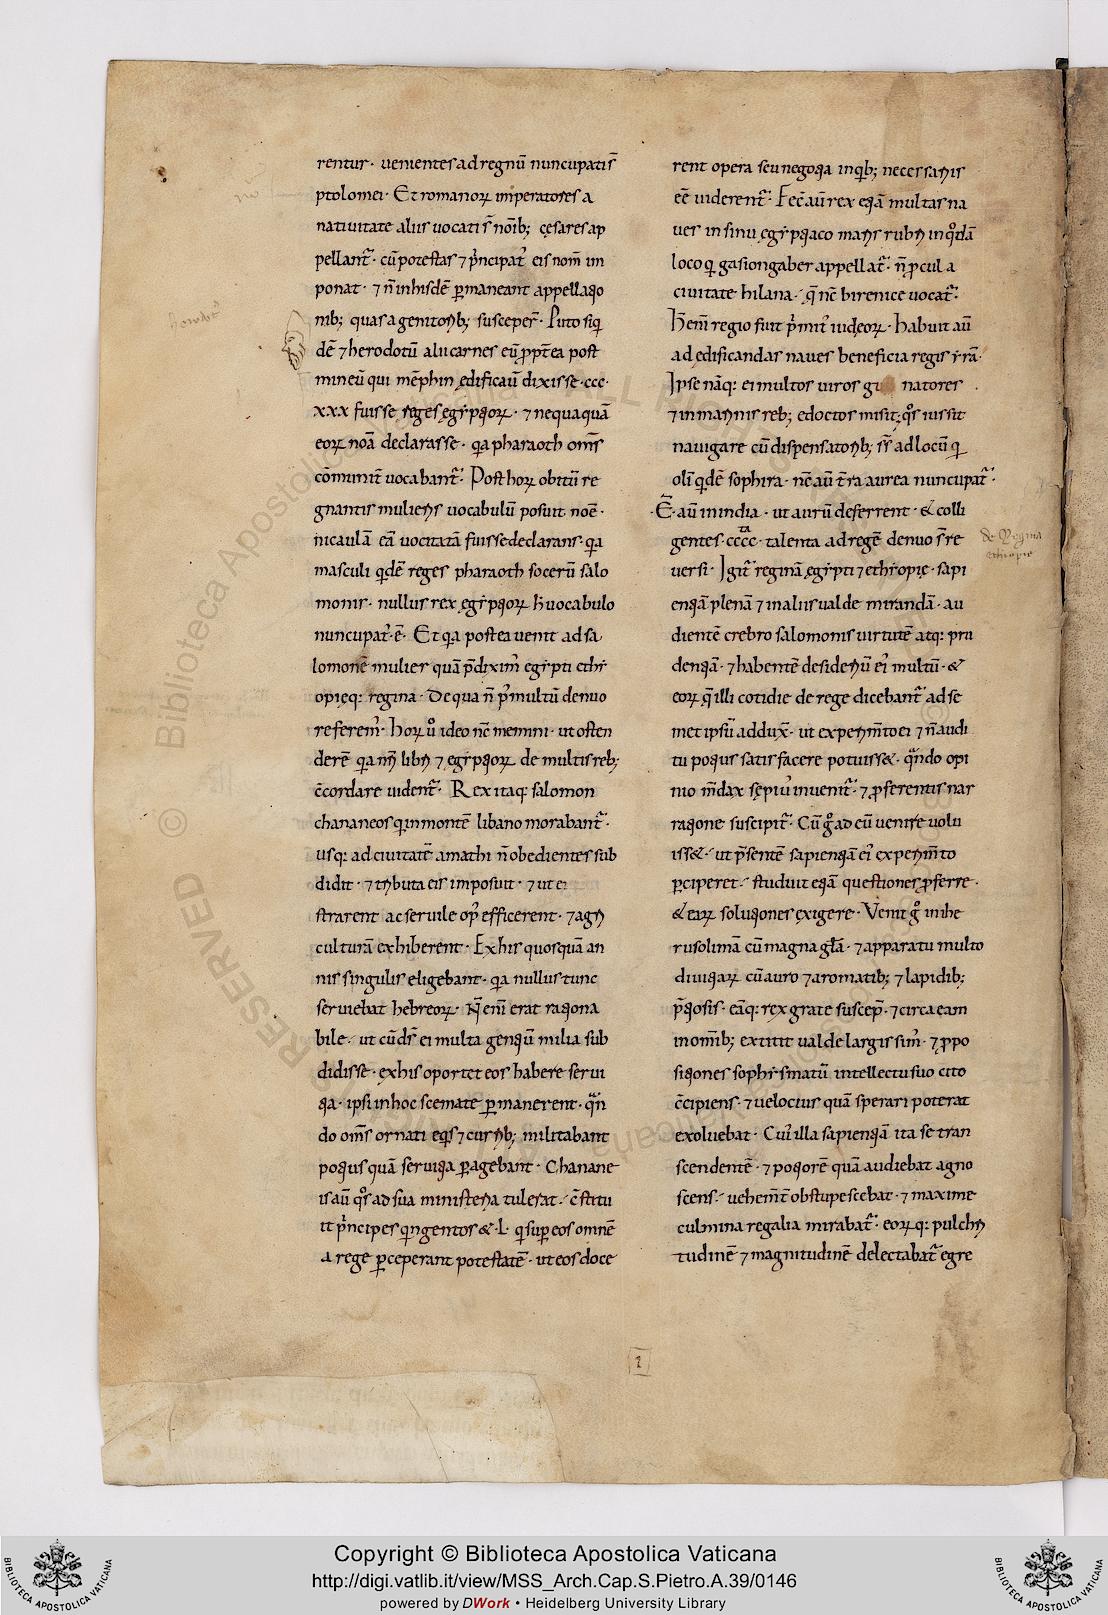 rentur· uenientes ad regnū nuncupati s̄
ptolomei· Et romanoꝝ imperatores a
natiuitate aliis uocati s̄ nōib; cęsares ap
pellant᷑· cū potestas ⁊ p̄ncipat᷒ eis nom̄ im
ponat· ⁊ n̄ in hisdē ꝑmaneant appellatio
nib; quas a genitorib; susceper̄· Puto siq
dē ⁊ herodotū alicarnes eū ꝓpt̄ea post
mineū qui mēphin ędificauit̄ dixisse ·ccc·
xxx fuisse reges ęgyptioꝝ· ⁊ nequaquā
eoꝝ noā declarasse· qa pharaoth om̄s
cōmunit̄ uocabant᷑· Post hoꝝ obitū re
gnantis mulieris uocabulū posuit noē·
nicaulā eā uocitatā fuisse declarans· qa
masculi qdē reges pharaoth socerū salo
monis· nullus rex ęgyptioꝝ h̄ uocabulo
nuncupat᷒ ē· Et qa postea uenit ad sa
lomonē mulier quā p̄dixim᷒ egypti ethy
opięq: regina· De qua n̄ p᷒ multū denuo
referem᷒· Hoꝝ ů ideo nc̄ memini· ut osten
derē qa nr̄i libri ⁊ egyptioꝝ de multis reb;
c̄cordare uident᷑· Rex itaq: salomon
chananeos qi in montē libano morabant᷑·
usq: ad ciuitatē amathi n̄ obedientes sub
didit· ⁊ tributa eis imposuit· ⁊ ut ei
strarent ac seruile op᷒ efficerent· ⁊ agri
culturā exhiberent· Ex his quosquā an
nis singulis eligebant· qa nullus tunc
seruiebat hebreoꝝ· Nē eni erat rationa
bile· ut cū dr̄ ei multa gentiū milia sub
didisse· ex his oportet eos habere serui
tia· ipsi in hoc scemate ꝑmanerent· qn̄
do om̄s ornati eqis ⁊ curribus; militabant
potius quā seruitia ꝑagebant· Chanane
is aū qos ad sua ministeria tulerat· c̄stitu
it p̄ncipes qingentos & ·L· qi sup eos omnē
a rege ꝑceperant potestatē· ut eos doce
rent opera seu negotia in qib; necessariis
eē uiderent᷑· Fec̄ aū rex etiā multas na
ues in sinu ęgyptiaco maris rubri in qodā
loco qi gasiongaber appellat᷑· n̄ ꝓcul a
ciuitate hilana· q̄ nc̄ birenice uocat᷑·
Hęni regio fuit p̄mit᷒ iudeoꝝ· habuit aū
ad edificandas naues beneficia regis yrā·
Ipse nāq: ei multos uiros gu natores
⁊ in marinis reb; edoctos misit; qos iussit
nauigare cū dispensatorib; s̄s ad locū qi
oli qdē sophira· nc̄ aū t̄ra aurea nuncupat᷑·
·Ē· aū in india· ut aurū deferrent· & colli
gentes cccc ta· talenta ad regē denuo s̄ re
uersi· Igit᷑ reginā ęgypti ⁊ ethyopię· sapi
entiā plenā ⁊ in aliis ualde mirandā· au
dientē crebro salomonis uirtutē atq: pru
dentiā· ⁊ habentē desideriū ei᷒ multū· &
eoꝝ q̄ illi cotidie de rege dicebant᷑ ad se
met ipsū addux̄· ut experim̄to ei ⁊ n̄ audi
tu potius satisfacere potuiss&· qn̄do opi
nio m̄dax sępi᷒ inuenit᷑· ⁊ ꝓferentis nar
ratione suscipit᷑· Cū g̊ ad eū uenire uolu
iss&· ut p̄sentē sapientiā ei᷒ experim̄to
ꝑciperet· studuit etiā questiones ꝓferre·
& eaꝝ solutiones exigere· Venit g̊ in hie
rusolimā cū magna gl̄a· ⁊ apparatu multo
diuitiaꝝ cū auro ⁊ aromatib; ⁊ lapidib;
p̄tiosis· eāq: rex grate suscep̄· ⁊ circa eam
in om̄ib; extitit ualde largissim᷒· ⁊ ꝓpo
sitiones sophysmatū intellectu suo cito
c̄cipiens· ⁊ uelocius quā sperari poterat
exoluebat· Cui᷒ illa sapientiā ita se tran
scendentē· ⁊ potiorē quā audiebat agno
scens· uehem̄t̄ obstupescebat· ⁊ maxime
culmina regalia mirabat᷑· eoꝝq: pulchri
tudinē ⁊ magnitudinē delectabat᷑ egre
de Regina
ethiopie
2
Copyright © Biblioteca Apostolica Vaticana
http://digi.vatlib.it/view/MSS_Arch.Cap.S.Pietro.A.39/0146
powered by DWork • Heidelberg University Library